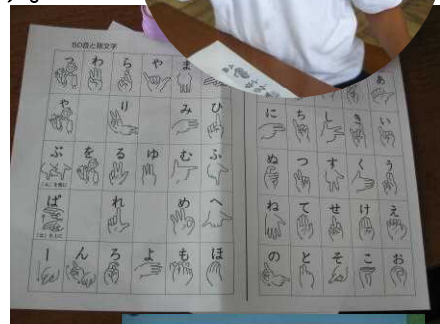 50音と指文字
っ わ ら や ま
ゃ り み ひ
ぶ を る ゆ む ふ
ぱ れ め へ
ー ん ろ よ も ほ
あ
に ち し き い
ぬ つ す く う
ね て せ け え
の と そ こ お